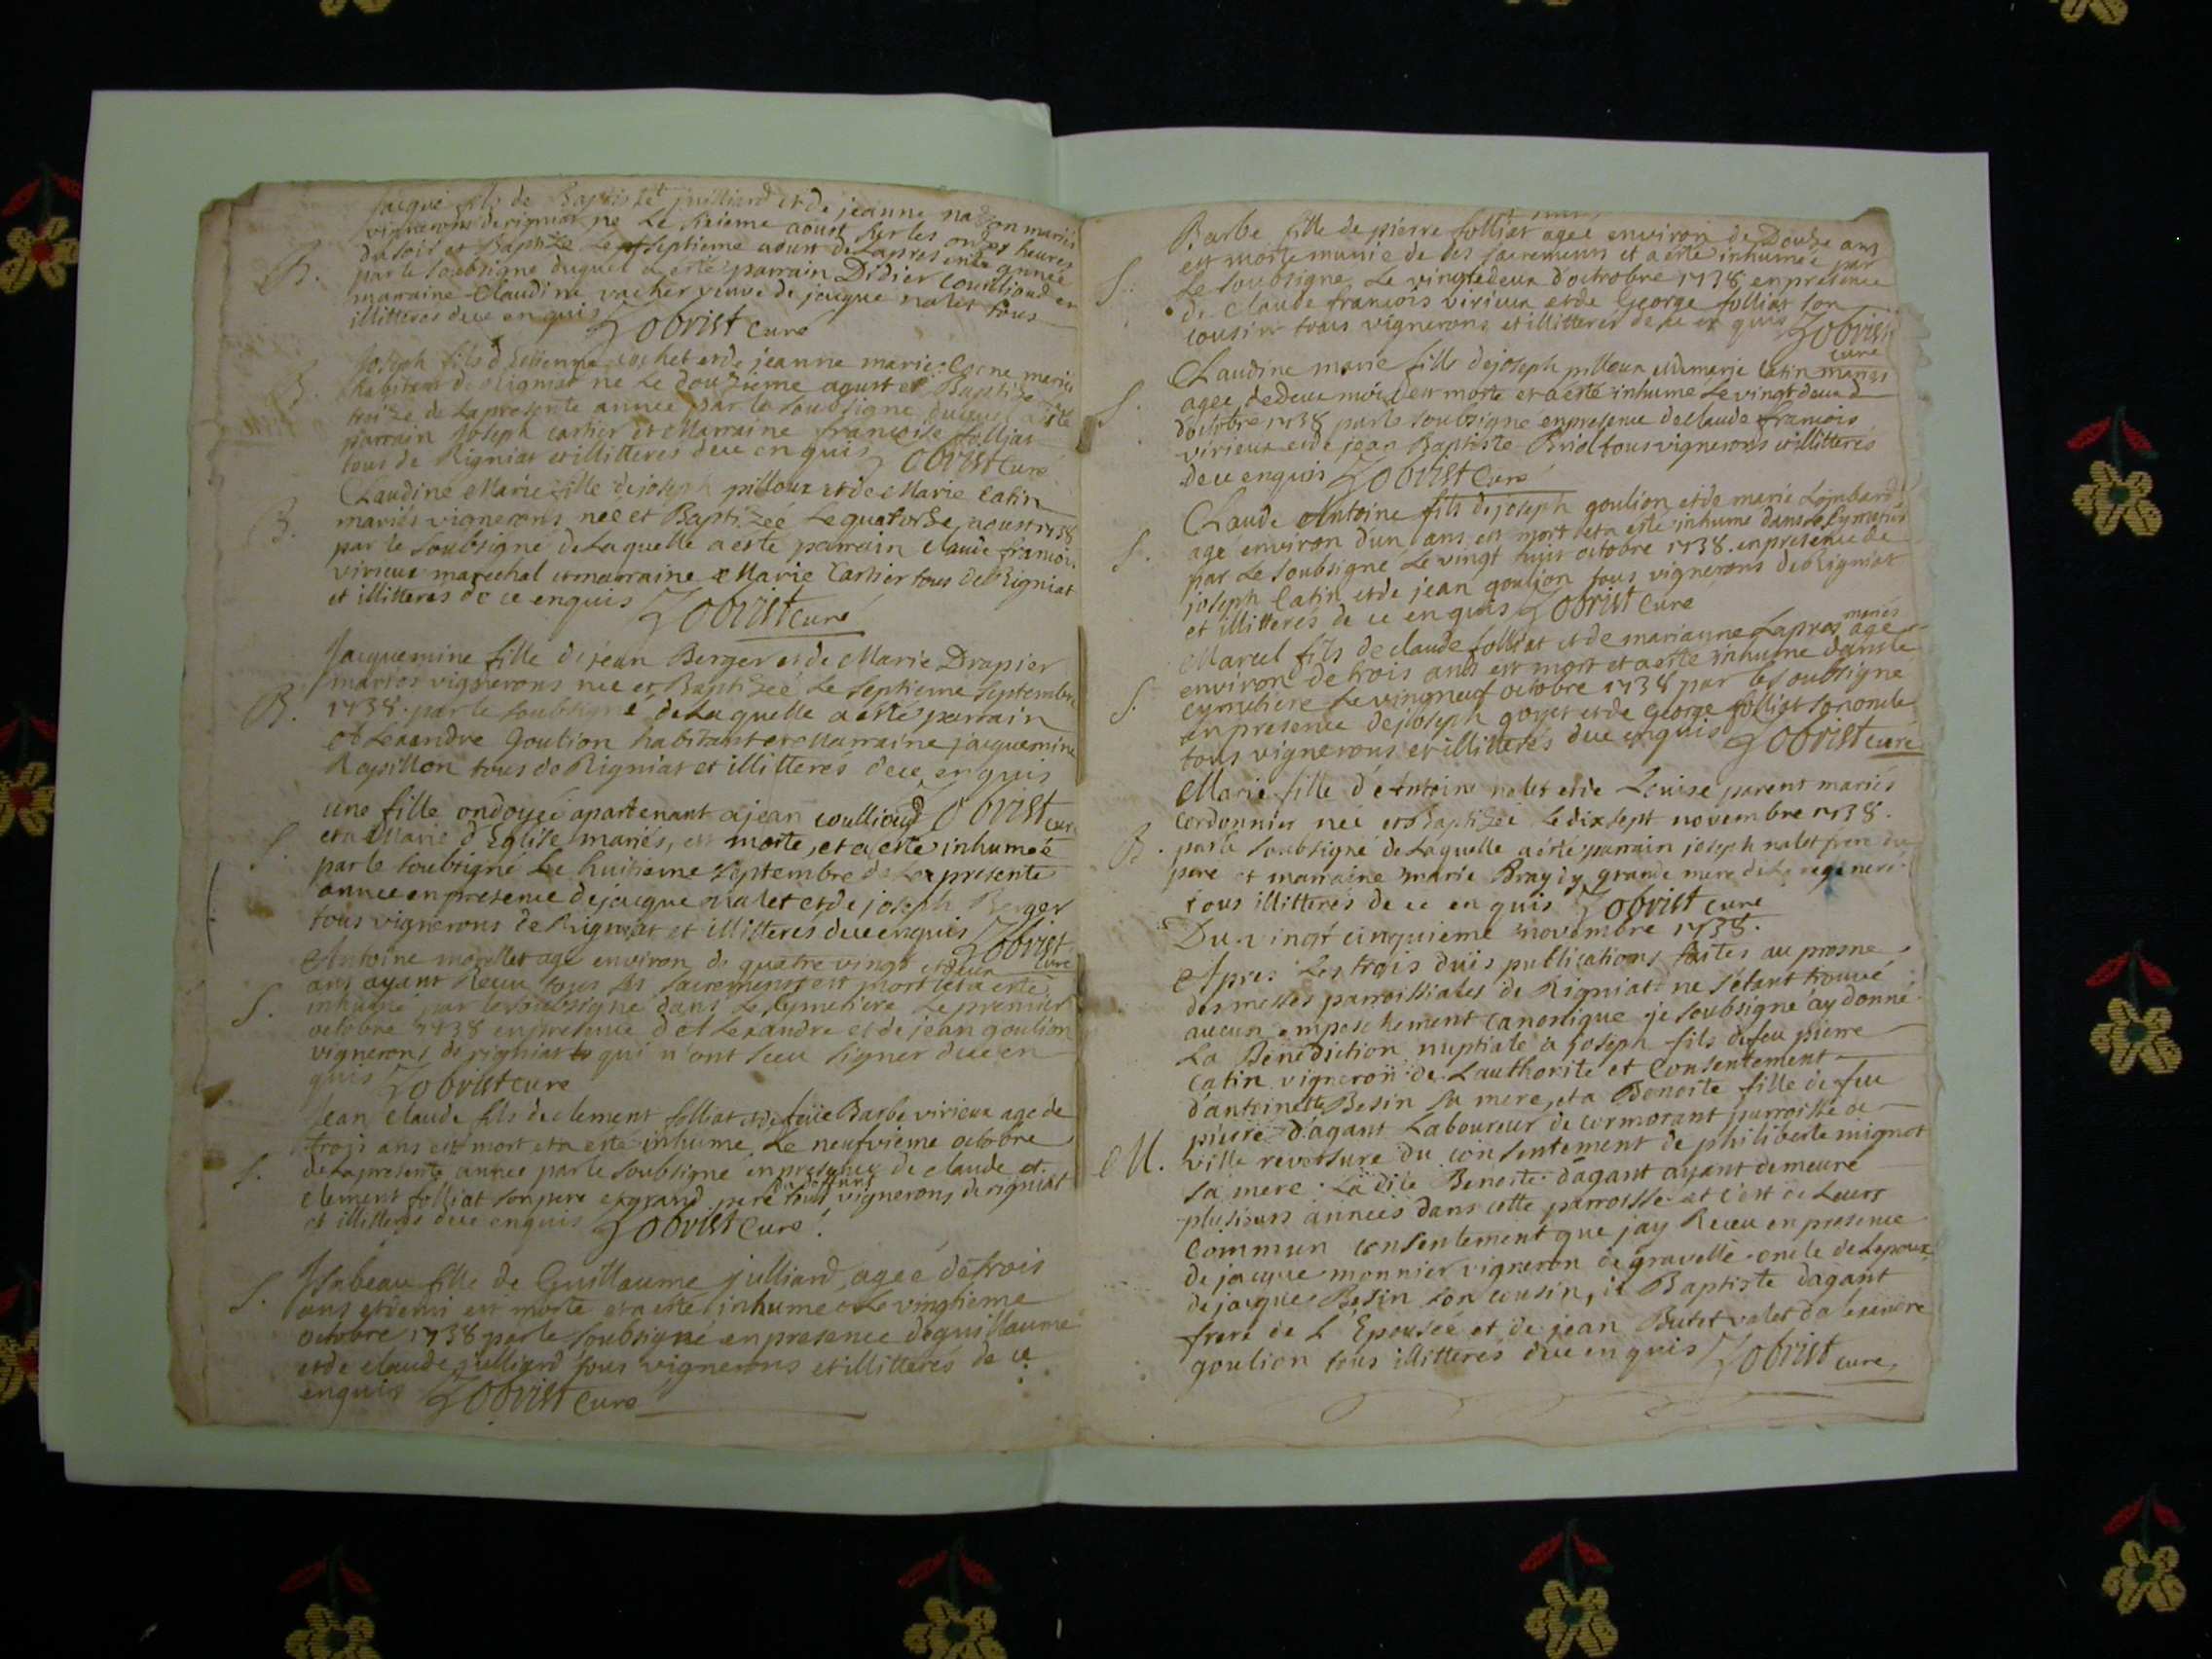 jacque fils de Baptiste juilliard et de jeanne nallon mariés
vignerons de rigniat ne Le sixieme aoust sur les onzes heures
du soir et Baptizé Le septieme aoust de La presente année
B. par le soubsigné duquel a esté parrain Didier coullioud et
marraine Claudine vacher veuve de jacque nalet tous
illitteres de ce enquis Zobrist Curé
joseph fils d'Estienne cochet et de jeanne marie mariés
B. habitant de Rigniat ne Le douzieme aoust et Baptizé le
treize de La presente année par le soubsigné duquel a esté
parrain joseph cartier et Marraine francoise folliat
tous de Rigniat et illitteres de ce enquis Zobrist Curé
Claudine Marie fille de joseph pilloux et de Marie Catin
B. mariés vignerons née et Baptizeé Le quatorze aoust 1738
par le soubsigné de Laquelle a esté parrain claude francois
virieux marechal et marraine Marie Cartier tous de Rigniat
et illitteres de ce enquis Zobrist curé
jacquemine fille de jean Berger et de Marie Drapier
mariés vignerons née et Baptizeé Le septieme septembre
B. 1738. par le soubsigné de Laquelle a esté parrain
Alexandre Goulion habitant et Marraine jacquemine
Ropillon tous de Rigniat et illitterés de ce enquis
une fille ondoyeé apartenant a jean coullioud Zobrist cure
S. et a Marie d'Eglise mariés, est morte, et a esté inhumeé
par le soubsigné Le huitieme septembre de La presente
année en presence de jacque nalet et de joseph Berger
tous vignerons de Rigniat et illitteres de ce enquis Zobrist
cure
Antoine morellet agé environ de quatre vingt et deux
ans ayant Receu tous les sacrements est mort et a esté
S. inhumé par le soubsigné dans Le Cymetiere Le premier
octobre 1738 en presence d'Alexandre et de jean goulion
vignerons de rigniat qui n'ont sceu signer de ce en
quis Zobrist curé
jean claude fils de clement folliat et de feüe Barbe virieux agé de
trois ans est mort et a esté inhumé Le neufvieme octobre
S. de La presente année par le soubsigné en presence de claude et
du deffunt
clement folliat son pere et grand pere tous vignerons de rigniat
et illitteres de ce enquis Zobrist Curé.
Isabeau fille de Guillaume julliard ageé de trois
S. ans et demi est morte et a esté inhumeé Le vingtieme
octobre 1738 par le soubsigné en presence de guillaume
et de claude julliard tous vignerons et illitterés de ce
enquis Zobrist Curé
Barbe fille de pierre folliat ageé environ de Douze ans
est morte munie de ses sacrements et a esté inhumeé par
S. Le soubsigné Le vingtedeux d'octrobre 1738 en presence
de claude francois virieux et de George folliat son
cousin tous vignerons et illitteres de ce en quis Zobrist
cure
Claudine marie fille de joseph pilloux et de marie Catin mariés
S. ageé de deux mois est morte et a esté inhumé Le vingt deux d
d'octobre 1738 par le soubsigné en presence de Claude francois
virieux et de jean Baptiste Briol tous vignerons et illitterés
de ce enquis Zobrist Curé
Claude Antoine fils de joseph goulion et de marie Lombard
agé environ d'un ans est mort et a esté inhumé dans le Cymetiere
S. par Le soubsigné Le vingt huit octobre 1738. en presence de
joseph Catin et de jean goulion tous vignerons de Rigniat
et illitterés de ce enquis Zobrist Curé
mariés
Marcel fils de claude folliat et de marianne Lapras agé
environ de trois ans est mort et a esté inhumé dans le
S. cymetiere Le vingneuf octobre 1738 par le soubsigné
en presence de joseph goyet et de George folliat son oncle
tous vignerons et illitterés de ce enquis Zobrist curé
Marie fille d'Antoine nalet et de Louise parent mariés
Cordonnier neé et Baptizeé Le dix sept novembre 1738.
B. par le soubsigné de Laquelle a esté parrain joseph nalet frere du
pere et marraine marie Braydy grande mere de La regenereé
tous illitterés de ce enquis Zobrist curé
Du vingt cinquieme novembre 1738.
Apres Les trois duës publications faites au prosne
des messes parroissiales de Rigniat ne s'etant trouvé
aucun empeschement canonique je soubsigné ay donné
La Benediction nuptiale a joseph fils de feu pierre
Catin vigneron de Lauthorité et Consentement
d'antoinette Besin sa mere, et a Benoite fille de feu
pierre d'agant Laboureur de cormorant parroisse de
M. ville reversure du consentement de philiberte mignot
sa mere. La dite Benoite dagant ayant demeuré
plusieurs années dans cette parroisse et c'est de Leurs
Commun consentement que jay Receu en presence
de jacque monnier vigneron de gravelle oncle de Lepoux,
de jacque Besin son cousin, de Baptiste dagant
frere de L'Epouseé et de jean Butet valet d'alexandre
goulion tous illitterés de ce enquis Zobrist curé